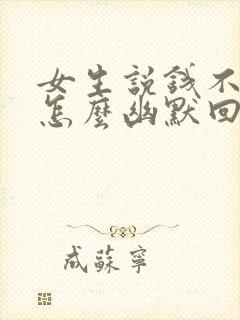 女生説錢不
怎麼幽默回
成蘇寧